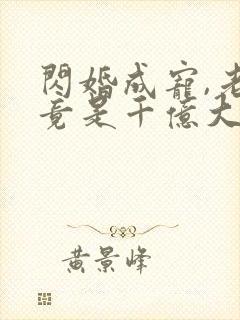 閃婚成寵,老
竟是千億大
黃景峰